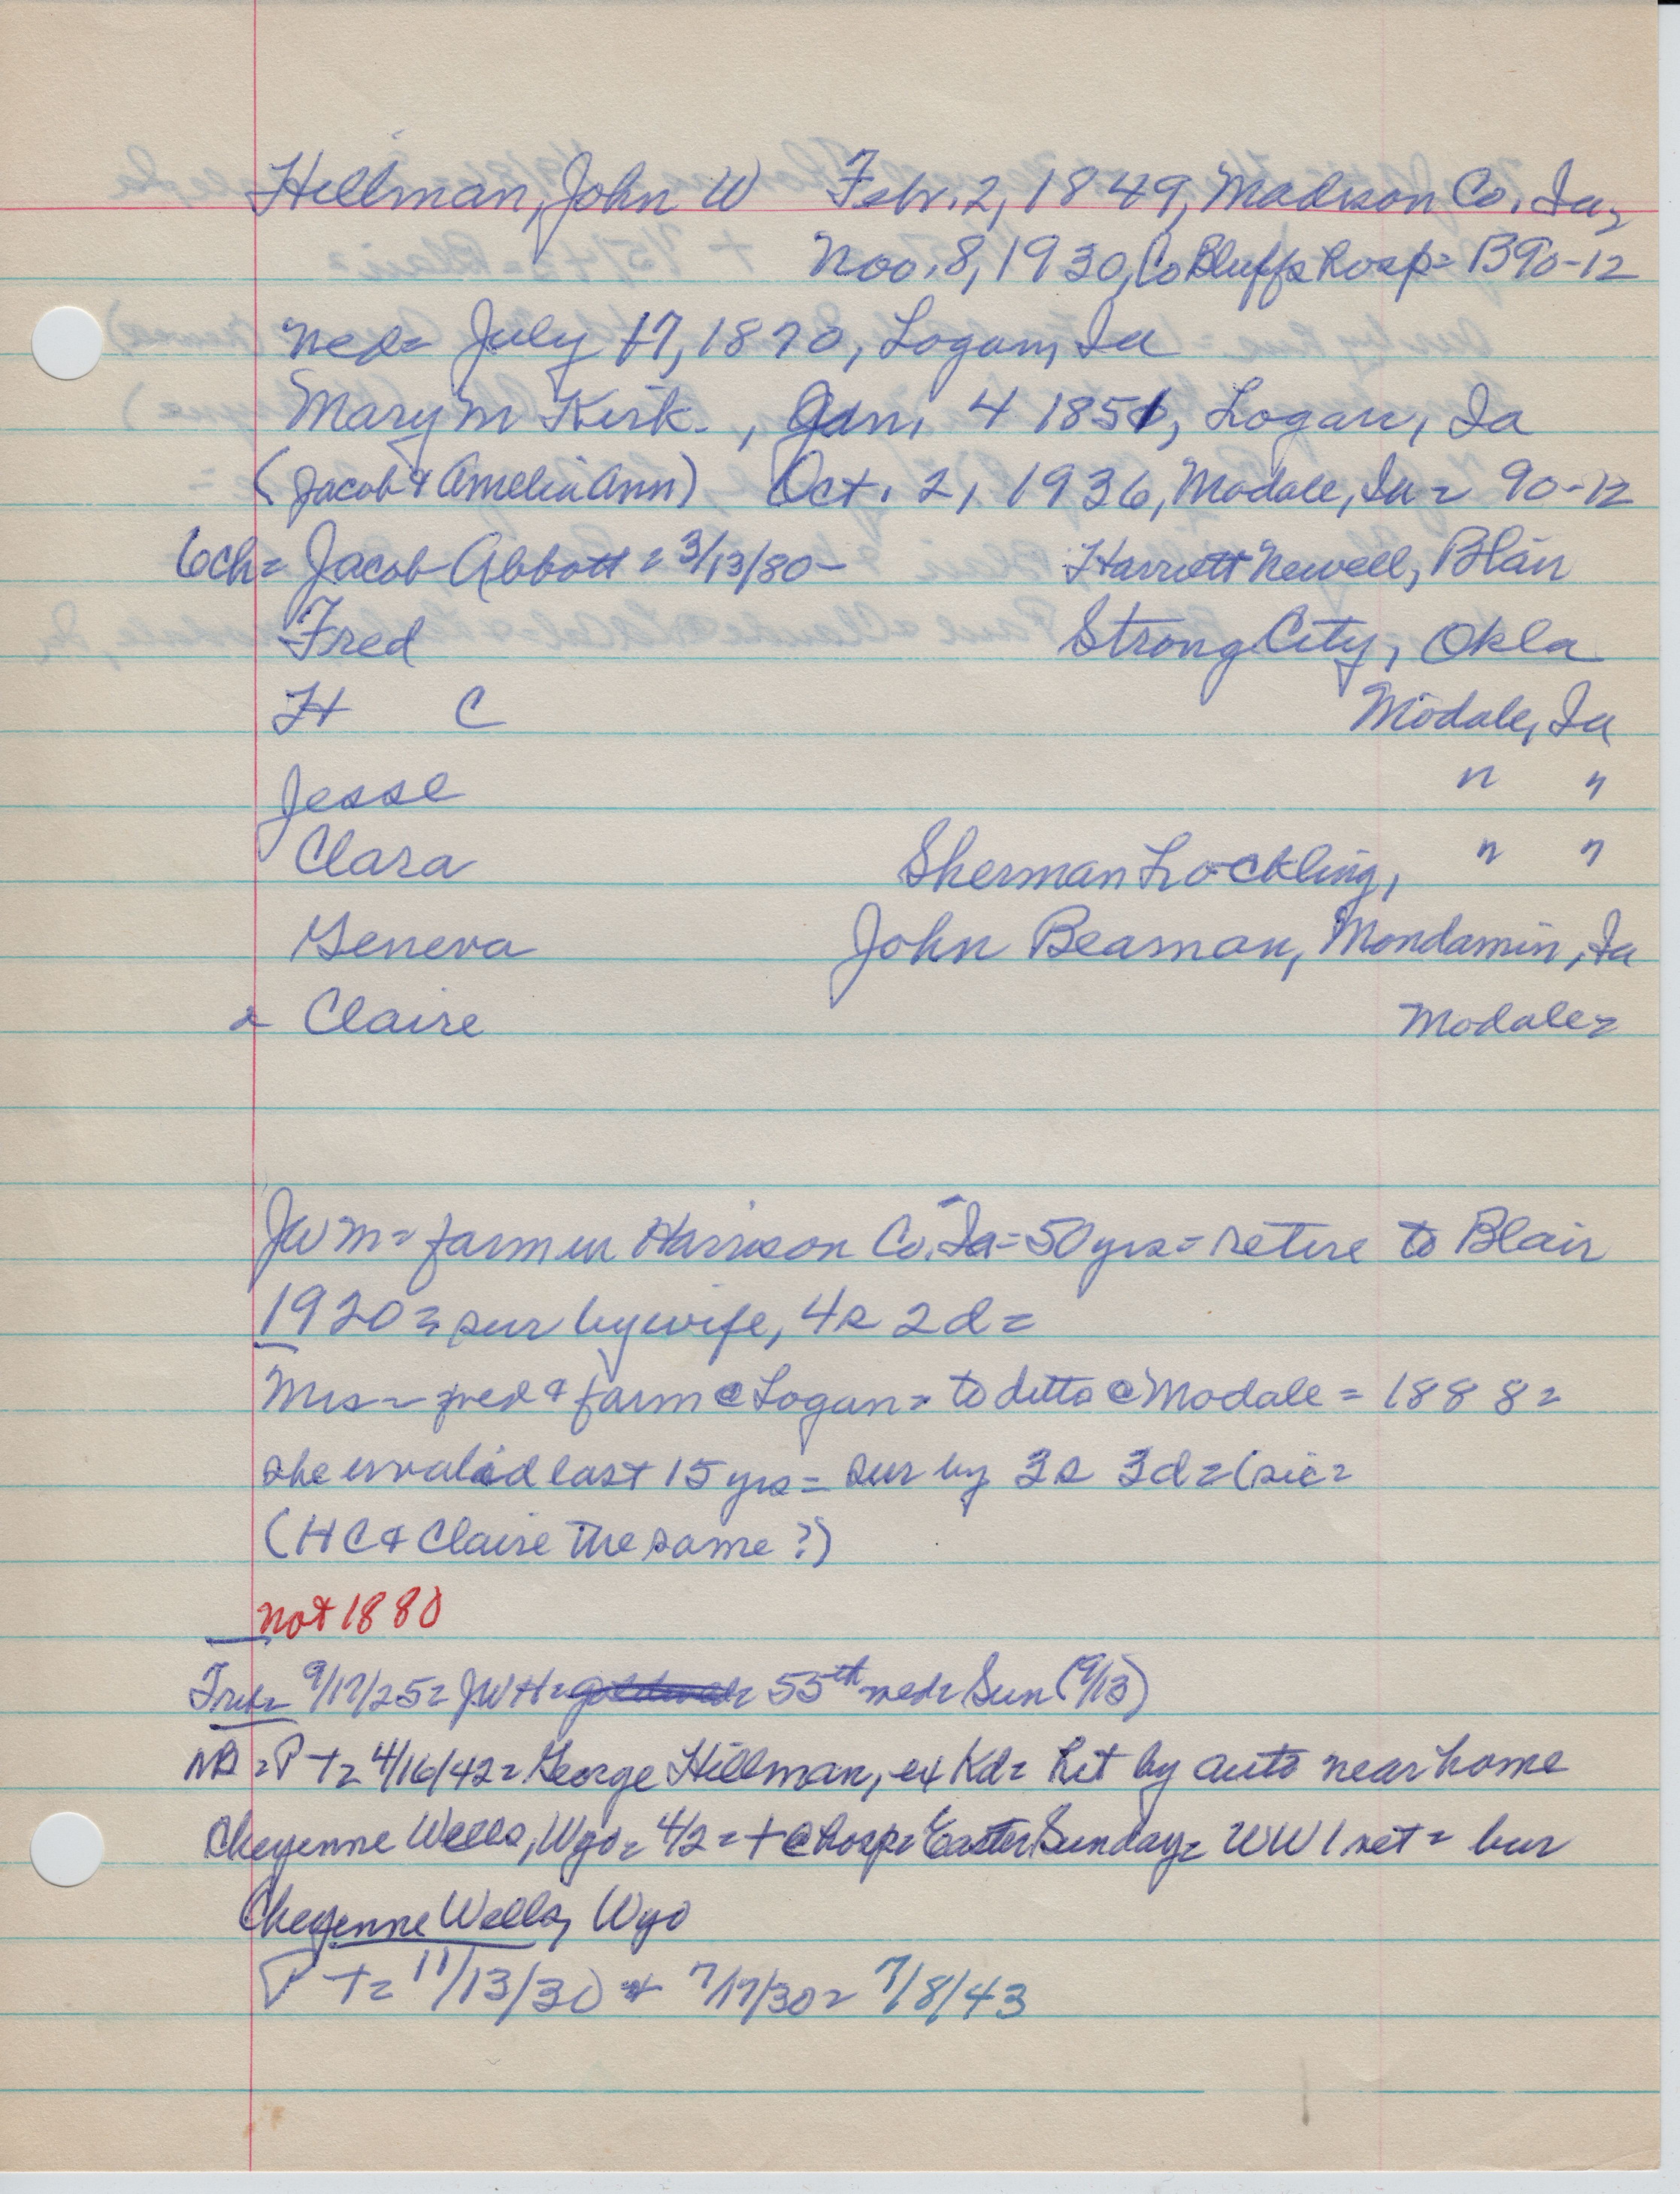 Hillman, John W Febr. 2, 1849, Madison Co. Ia,
Nov. 8, 1930, Co Bluffs hosp = B90-12
wed = July 17, 1870, Logan, Ia
Mary M Kirk, Jan, 4 1851, Logan, Ia
(Jacob & Amelia Ann) Oct. 2, 1936, Modale, Ia = 90-12
6ch = Jacob Abbott = 3/13/80 - Harriett Newell, Blair
Fred Strong City, Okla
H C Modale, Ia
Jesse " "
Clara Sherman Lockling, " "
Geneva John Beaman, Mondamin, Ia
& Claire Modale =
JW m = farm in Harrison Co. Ia = 50 yrs = retire to Blair
1920 = sur by wife, 4s 2d =
Mrs = wed & farm @ Logan = to ditto @ Modale = 1888 =
she invalid last 15 yrs = sur by 3s 3d = (sic =
(HC & Claire the same?)
not 1880
9/17/25 = JWH = 55th wed = Sun (9/13)
= P T = 4/16/42 = George Hillman, ex Kd = hit by auto near home
Cheyenne Wells, Wyo = 4/2 = + @ hosp = Easter Sunday = WW 1 vet = bur
Cheyenne Wells, Wyo
P T = 11/13/30 + 7/17/30 = 7/8/43